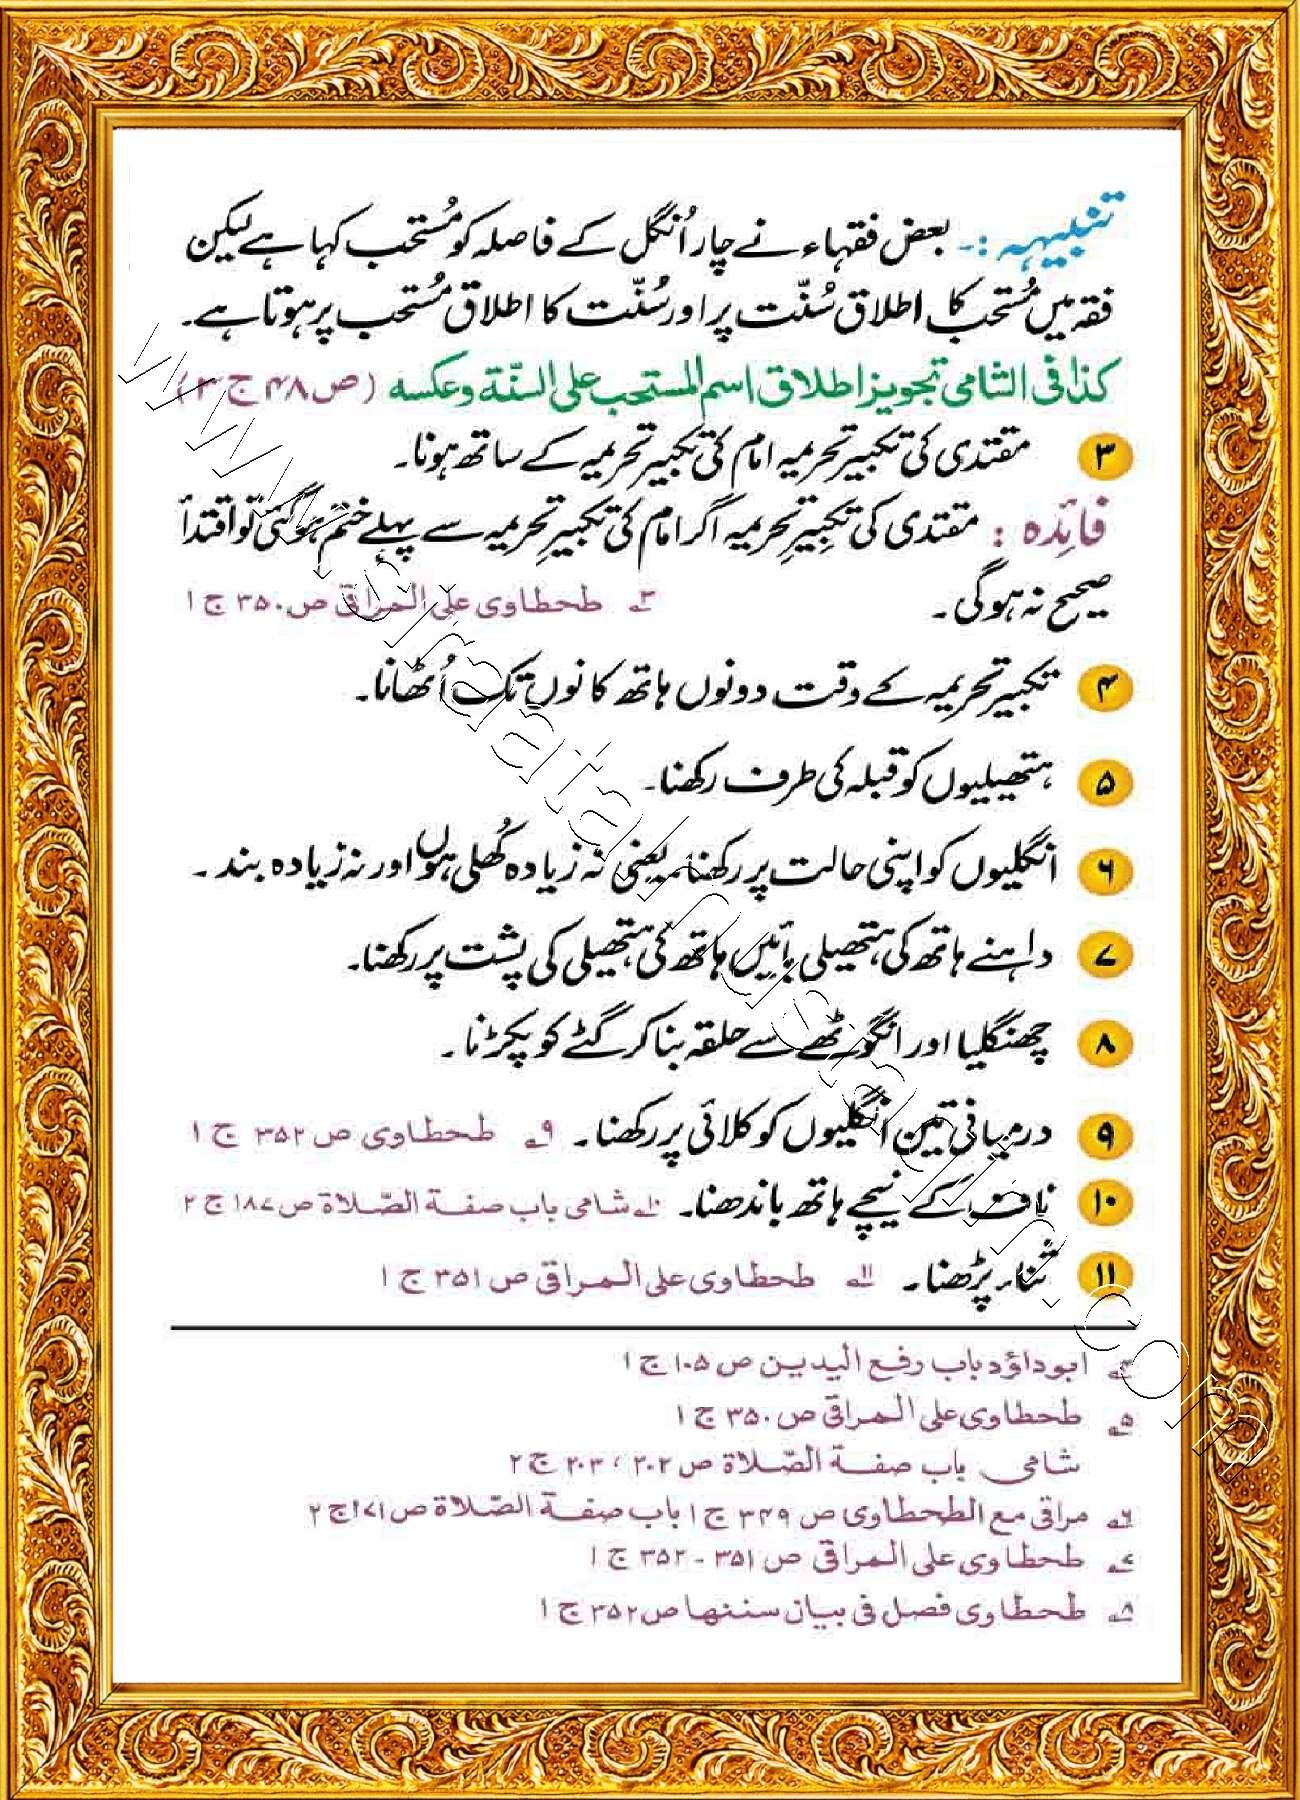 تنبیہہ :۔ بعض فقہاء نے چار اُنگل کے فاصلہ کو مُستحب کہا ہے لیکن
فقہ میں مُستحب کا اطلاق سُنّت پر اور سُنّت کا اطلاق مُستحب پر ہوتا ہے۔
کذا فی الشامی تجویز اطلاق اسم المستحب علی السنّة وعکسه (ص ۴۸ ج ۲)
۳ مقتدی کی تکبیر تحریمہ امام کی تکبیر تحریمہ کے ساتھ ہونا۔
فائدہ : مقتدی کی تکبیرِ تحریمہ اگر امام کی تکبیرِ تحریمہ سے پہلے ختم ہوگئی تو اقتدأ
صحیح نہ ہوگی۔ ۳؎ طحطاوی علی المراقی ص ۳۵۰ ج ۱
۴ تکبیر تحریمہ کے وقت دونوں ہاتھ کانوں تک اُٹھانا۔
۵ ہتھیلیوں کو قبلہ کی طرف رکھنا۔
۶ انگلیوں کو اپنی حالت پر رکھنا یعنی نہ زیادہ کُھلی ہوں اور نہ زیادہ بند۔
۷ داہنے ہاتھ کی ہتھیلی بائیں ہاتھ کی ہتھیلی کی پشت پر رکھنا۔
۸ چھنگلیا اور انگوٹھے سے حلقہ بنا کر گٹے کو پکڑنا۔
۹ درمیانی تین انگلیوں کو کلائی پر رکھنا۔ ۹؎ طحطاوی ص ۳۵۲ ج ۱
۱۰ ناف کے نیچے ہاتھ باندھنا۔ ۱۰؎ شامی باب صفة الصّلاة ص ۱۸۷ ج ۲
۱۱ ثناء پڑھنا۔ ۱۱؎ طحطاوی علی المراقی ص ۳۵۱ ج ۱
۴؎ ابوداؤد باب رفع الیدین ص ۱۰۵ ج ۱
۵؎ طحطاوی علی المراقی ص ۳۵۰ ج ۱
شامی باب صفة الصّلاة ص ۲۰۲، ۲۰۳ ج ۲
۶؎ مراقی مع الطحطاوی ص ۳۴۹ ج ۱ باب صفة الصّلاة ص ۱۷۱ ج ۲
۷؎ طحطاوی علی المراقی ص ۳۵۱ - ۳۵۲ ج ۱
۸؎ طحطاوی فصل فی بیان سننها ص ۳۵۲ ج ۱